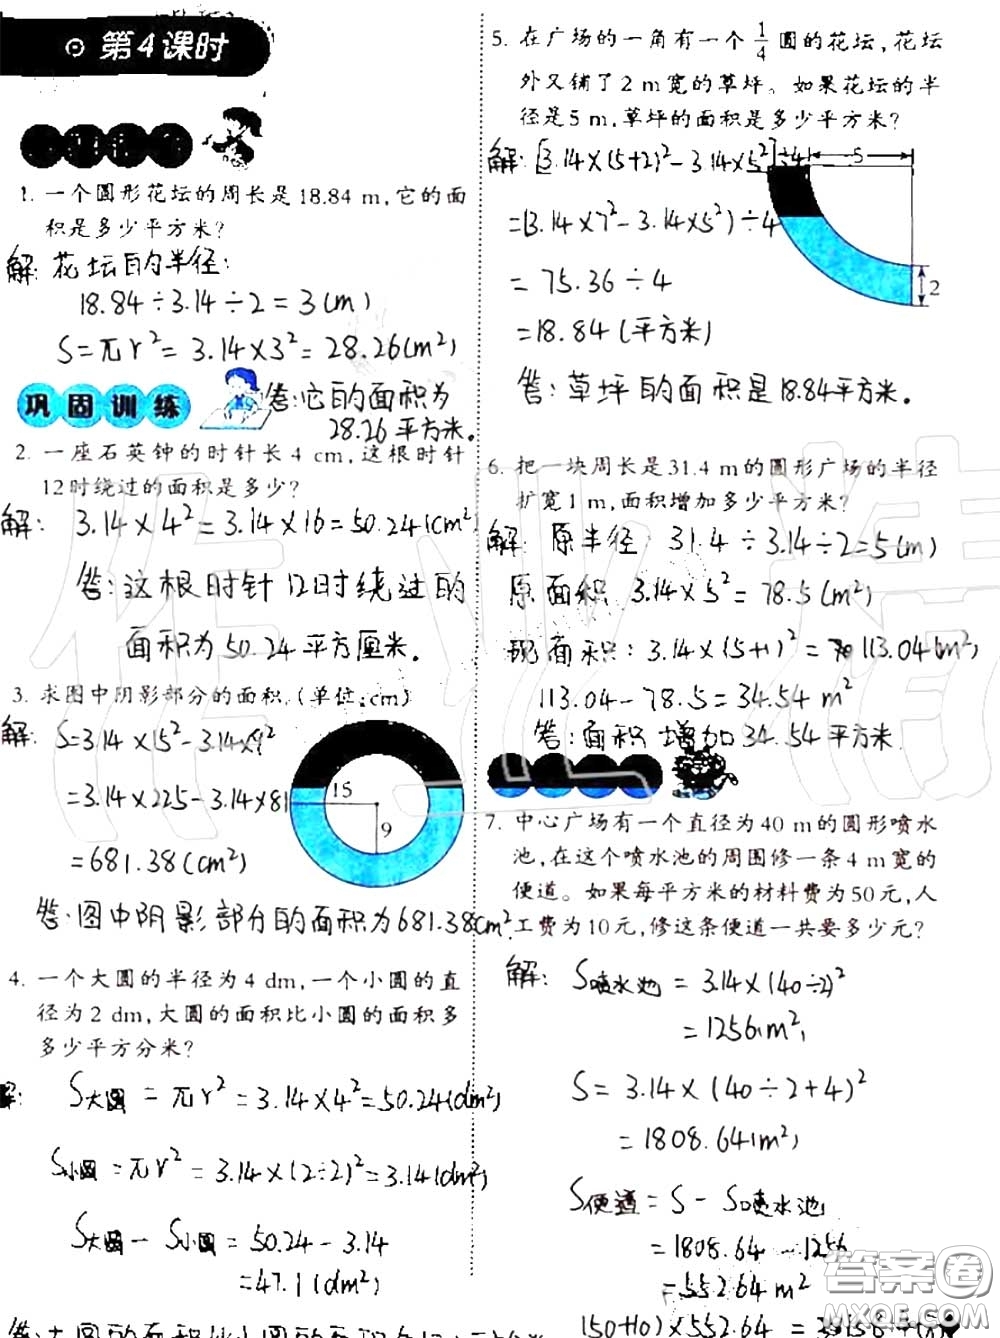 第4课时
1. 一个圆形花坛的周长是18.84 m,它的面
积是多少平方米?
解:花坛的半径:
18.84÷3.14÷2=3(m)
S=πr²=3.14×3²=28.26(m²)
答:它的面积为
28.26平方米。
巩固训练
2. 一座石英钟的时针长4 cm,这根时针
12时绕过的面积是多少?
解: 3.14×4²=3.14×16=50.24(cm²)
答:这根时针12时绕过的
面积为50.24平方厘米.
3. 求图中阴影部分的面积.(单位:cm)
解: S=3.14×15²-3.14×9²
=3.14×225-3.14×81
=681.38(cm²)
15
9
答:图中阴影部分的面积为681.38cm².
4. 一个大圆的半径为4 dm,一个小圆的直
径为2 dm,大圆的面积比小圆的面积多
多少平方分米?
解: S大圆=πr²=3.14×4²=50.24(dm²)
S小圆=πr²=3.14×(2÷2)²=3.14(dm²)
S大圆-S小圆=50.24-3.14
=47.1(dm²)
5. 在广场的一角有一个1/4圆的花坛,花坛
外又铺了2 m宽的草坪。如果花坛的半
径是5 m,草坪的面积是多少平方米?
解:[3.14×(5+2)²-3.14×5²]÷4
5
=(3.14×7²-3.14×5²)÷4
=75.36÷4
2
=18.84(平方米)
答:草坪的面积是18.84平方米。
6. 把一块周长是31.4 m的圆形广场的半径
扩宽1 m,面积增加多少平方米?
解:原半径:31.4÷3.14÷2=5(m)
原面积:3.14×5²=78.5(m²)
现面积:3.14×(5+1)²=113.04(m²)
113.04-78.5=34.54 m²
答:面积增加34.54平方米.
7. 中心广场有一个直径为40 m的圆形喷水
池,在这个喷水池的周围修一条4 m宽的
便道。如果每平方米的材料费为50元,人
工费为10元,修这条便道一共要多少元?
解: S喷水池=3.14×(40÷2)²
=1256(m²)
S=3.14×(40÷2+4)²
=1808.64(m²)
S便道=S-S喷水池
=1808.64-1256
=552.64 m²
(50+10)×552.64=
作业精
答案圈
MXQE.COM